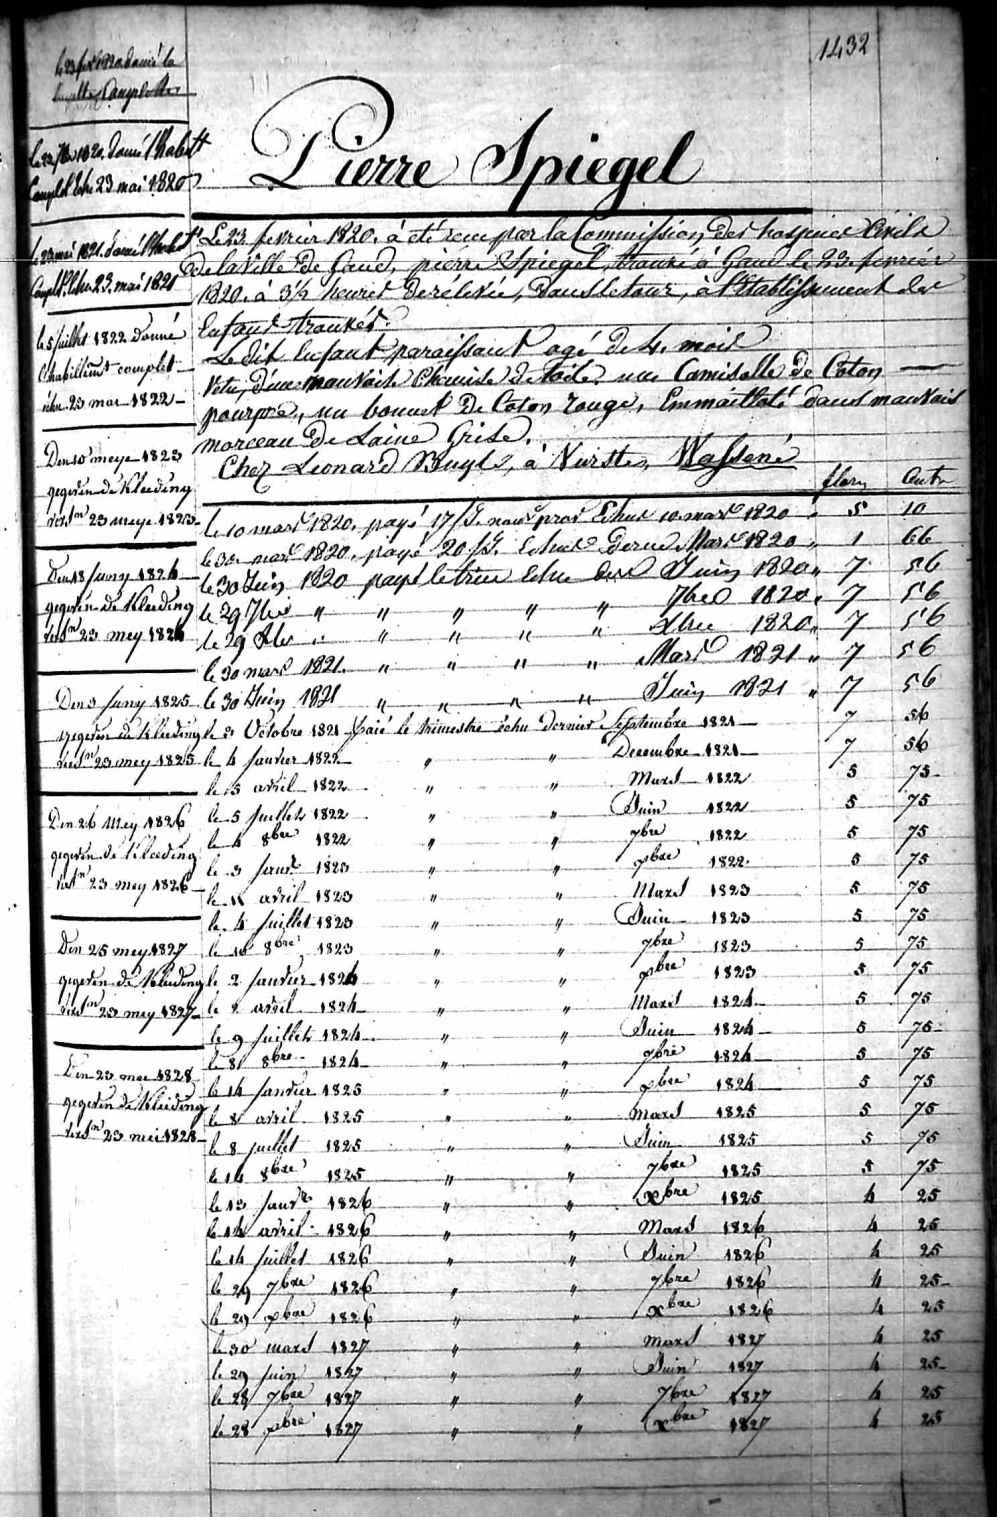 1432
Pierre Spiegel
Le 23. fevrier 1820. à été recu par la Commission des hospices Civils
de la Ville de Gand, pierre Spiegel, trouvé à Gand le 23. fevrier
1820. à 3½ heures de rélevée, dans le tour, à l'Etablissement des
Enfans trouvés.
Le dit Enfant paraissant agé de 4. mois
Vetu, d'une mauvaise Chemise de toile, une Camisolle de Coton
pourpre, un bonnet de Coton rouge, Emmailloté dans mauvais
morceau de Laine Grise.
Chez Leonard Buyls, à Vurste,
flor. Cents
le 10 mars 1820. payé 17/S. Echus 10 mars 1820 " 5 10
le 30 mars 1820. payé 20 Echus Mars 1820 " 1 66
le 30 Juin 1820 payé le trim Echu Juin 1820 " 7 56
le 29 7bre " " " " " 7bre 1820 " 7 56
le 29 Xbre " " " " " Xbre 1820 " 7 56
le 30 mars 1821. " " " " Mars 1821 " 7 56
le 30 Juin 1821 " " " " Juin 1821 " 7 56
le 31 Octobre 1821 Paié le trimestre échu dernier Septembre 1821 — 7 56
le 4 janvier 1822 " " Decembre 1821 — 7 56
le 5 avril 1822 " " Mars 1822 5 75
le 5 juillet 1822 " " Juin 1822 5 75
le 4 8bre 1822 " " 7bre 1822 5 75
le 3 janvr 1823 " " xbre 1822 5 75
le avril 1823 " " Mars 1823 5 75
le 4 juillet 1823 " " Juin 1823 5 75
le 10 8bre 1823 " " 7bre 1823 5 75
le 2 janvier 1824 " " xbre 1823 5 75
le 2 avril 1824 " " Mars 1824 5 75
le 9 juillet 1824 " " Juin 1824 5 75
le 8 8bre 1824 " " 7bre 1824 5 75
le 14 janvier 1825 " " xbre 1824 5 75
le 8 avril 1825 " " Mars 1825 5 75
le 8 juillet 1825 " " Juin 1825 5 75
le 14 8bre 1825 " " 7bre 1825 5 75
le 13 janvr 1826 " " Xbre 1825 4 25
le 14 avril 1826 " " Mars 1826 4 25
le 14 juillet 1826 " " Juin 1826 4 25
le 29 7bre 1826 " " 7bre 1826 4 25
le 29 xbre 1826 " " Xbre 1826 4 25
le 30 mars 1827 " " Mars 1827 4 25
le 29 juin 1827 " " Juin 1827 4 25
le 28 7bre 1827 " " 7bre 1827 4 25
le 28 xbre 1827 " " Xbre 1827 4 25
le 23 1820 donné la
le 22 7bre 1820. donné l'habill
Complet Echu 23 mai 1820
le 23 mai 1821. donné l'habill
Complt. Echu 23. mai 1821
le 5 juillet 1822 Donné
l'habillemt complet
échu 23 mai 1822
Den 10 meye 1823
gegeven de Kleeding
verst 23 meye 1823
Den 18 Juny 1824
gegeven de Kleeding
verst 23 mey 1824
Den 3 Juny 1825
gegeven de Kleeding
verst 23 mey 1825
Den 26 Mey 1826
gegeven de Kleeding
verst 23 mey 1826
Den 25 mey 1827
gegeven de Kleeding
verst 23 mey 1827
Den 23 mei 1828
gegeven de Kleeding
verst 23 mei 1828